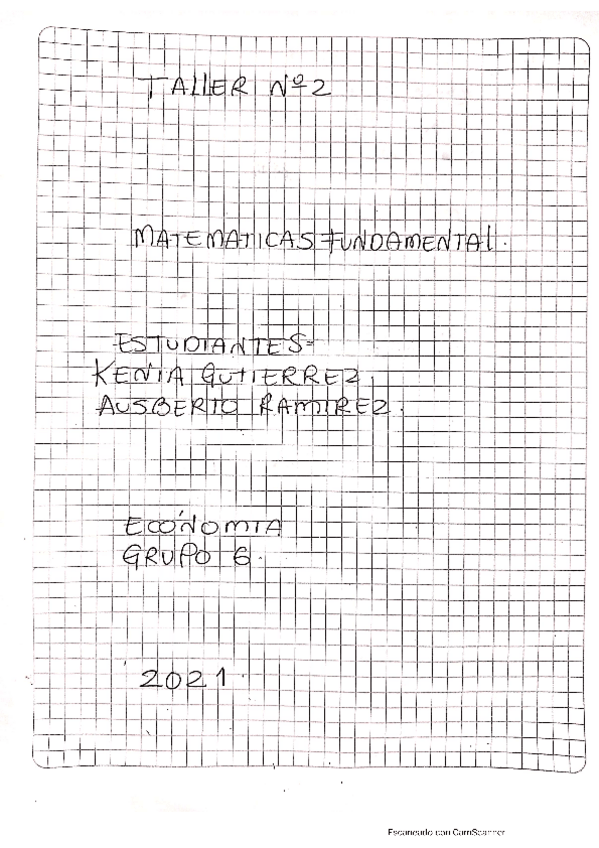 TALLER Nº2
MATEMATICAS FUNDAMENTAL.
ESTUDIANTES:
KENIA GUTIERREZ
AUSBERTO RAMIREZ.
ECONOMIA
GRUPO 6.
2021
Escaneado con CamScanner